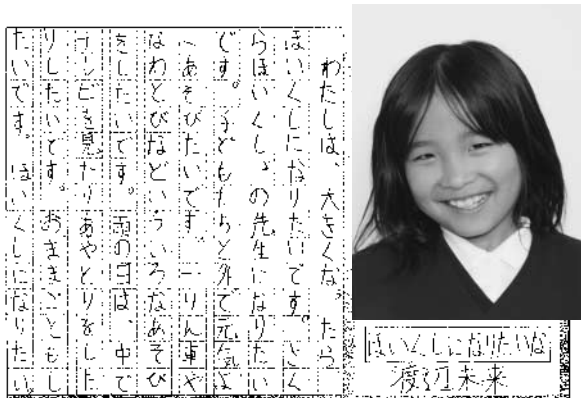 わたしは、大きくなったら
ほいくしになりたいです。さく
らほいくしょの先生になりたい
です。子どもたちと外で元気よ
くあそびたいです。一りん車や
なわとびなどいろいろなあそび
をしたいです。雨の日は、中で
テレビを見たりあやとりをした
りしたいです。おままごともし
たいです。ほいくしになりたい。
ほいくしになりたいな
渡辺未来